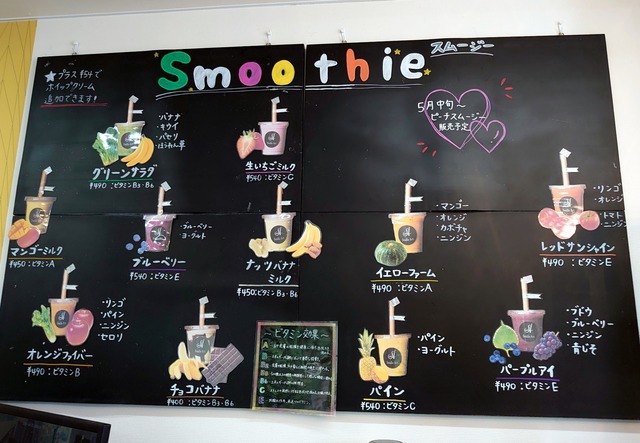 Smoothie スムージー
★プラス¥54で
ホイップクリーム
追加できます!
5月中旬~
ピーナスムージー
販売予定
・バナナ
・キウイ
・パセリ
・ほうれん草
グリーンサラダ
¥490:ビタミンB3・B6
生いちごミルク
¥540:ビタミンC
マンゴーミルク
¥450:ビタミンA
・ブルーベリー
・ヨーグルト
ブルーベリー
¥540:ビタミンE
ナッツバナナ
ミルク
¥450:ビタミンB3・B6
・マンゴー
・オレンジ
・カボチャ
・ニンジン
イエローファーム
¥490:ビタミンA
・リンゴ
・オレンジ
・トマト
・ニンジン
レッドサンシャイン
¥490:ビタミンE
・リンゴ
・パイン
・ニンジン
・セロリ
オレンジファイバー
¥490:ビタミンB
チョコバナナ
¥400:ビタミンB3・B6
~ビタミン効果~
・パイン
・ヨーグルト
パイン
¥540:ビタミンC
・ブドウ
・ブルーベリー
・ニンジン
・青じそ
パープルアイ
¥490:ビタミンE